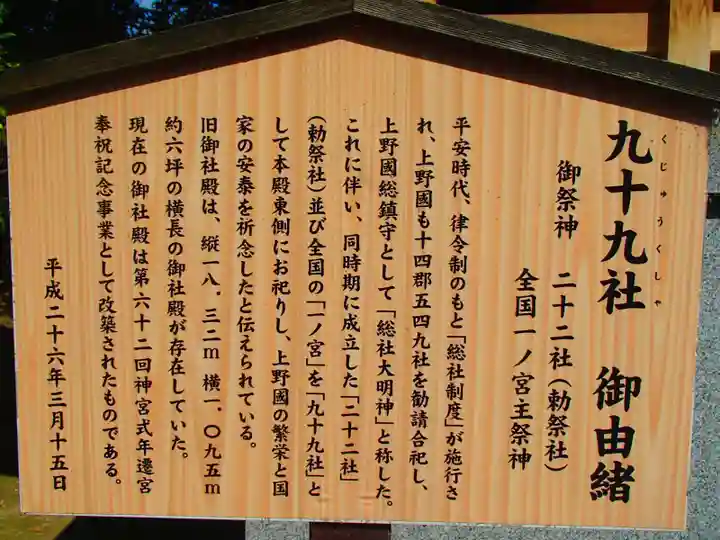 くじゅうくしゃ
九十九社 御由緒
御祭神 二十二社(勅祭社)
全国一ノ宮主祭神
平安時代、律令制のもと「総社制度」が施行さ
れ、上野國も十四郡五四九社を勧請合祀し、
上野國総鎮守として「総社大明神」と称した。
これに伴い、同時期に成立した「二十二社」
(勅祭社)並び全国の「一ノ宮」を「九十九社」と
して本殿東側にお祀りし、上野國の繁栄と国
家の安泰を祈念したと伝えられている。
旧御社殿は、縦一八.三二m 横一.〇九五m
約六坪の横長の御社殿が存在していた。
現在の御社殿は第六十二回神宮式年遷宮
奉祝記念事業として改築されたものである。
平成二十六年三月十五日